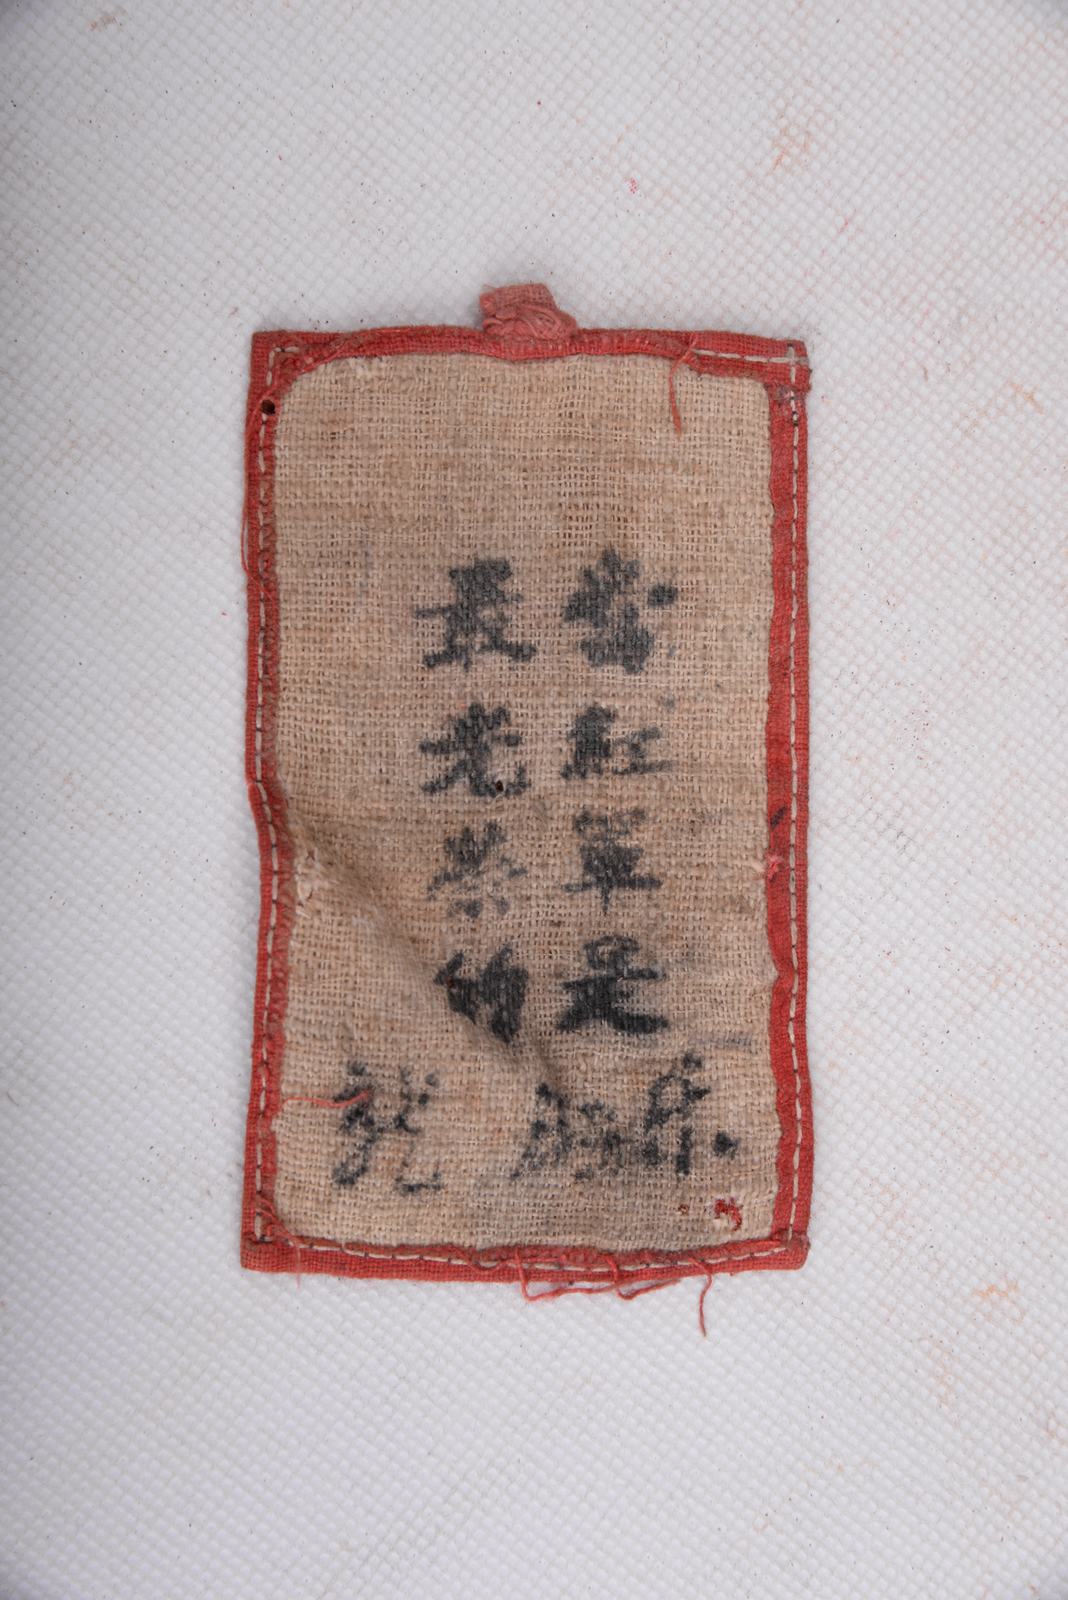 當紅軍是
最光榮的